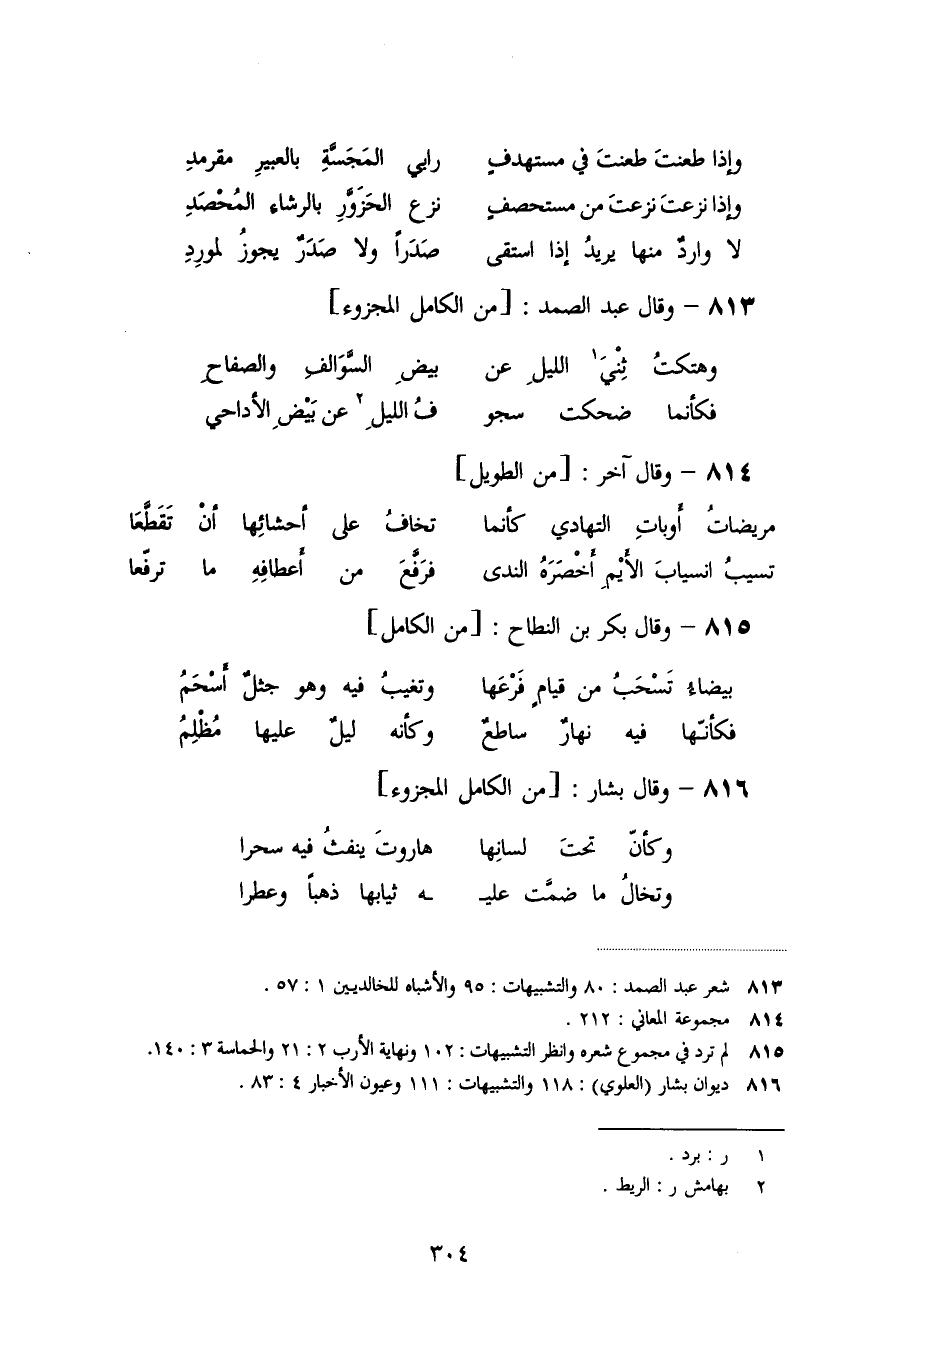 وإذا طعنتَ طعنتَ في مستهدفٍ رابي المَجَسَّةِ بالعبيرِ مقرمدِ
وإذا نزعتَ نزعتَ من مستحصفٍ نزع الحَزَوَّرِ بالرشاء المُحْصَدِ
لا واردٌ منها يريدُ إذا استقى صَدَراً ولا صَدَرٌ يجوزُ لموردِ
٨١٣ – وقال عبد الصمد : [من الكامل المجزوء]
وهتكتُ ثِنْيَ١ الليلِ عن بيضِ السَّوَالفِ والصفاحِ
فكأنما ضحكت سجو فُ الليلِ٢ عن بَيْضِ الأداحي
٨١٤ – وقال آخر : [من الطويل]
مريضاتُ أَوباتِ التهادي كأنما تخافُ على أحشائِها أنْ تَقَطَّعَا
تسيبُ انسيابَ الأَيْمِ أَخْصَرَهُ الندى فرَفَّعَ من أَعطافِهِ ما ترفّعا
٨١٥ – وقال بكر بن النطاح : [من الكامل]
بيضاءُ تَسْحَبُ من قيامٍ فَرْعَها وتغيبُ فيه وهو جثلٌ أَسْحَمُ
فكأنّها فيه نهارٌ ساطعٌ وكأنه ليلٌ عليها مُظْلِمُ
٨١٦ – وقال بشار : [من الكامل المجزوء]
وكأنّ تحتَ لسانِها هاروتَ ينفثُ فيه سحرا
وتخالُ ما ضمَّت عليـ ـه ثيابها ذهباً وعطرا
٨١٣ شعر عبد الصمد : ٨٠ والتشبيهات : ٩٥ والأشباه للخالديين ١ : ٥٧ .
٨١٤ مجموعة المعاني : ٢١٢ .
٨١٥ لم ترد في مجموع شعره وانظر التشبيهات : ١٠٢ ونهاية الأرب ٢ : ٢١ والحماسة ٣ : ١٤٠.
٨١٦ ديوان بشار (العلوي) : ١١٨ والتشبيهات : ١١١ وعيون الأخبار ٤ : ٨٣ .
١ ر : برد .
٢ بهامش ر : الريط .
٣٠٤